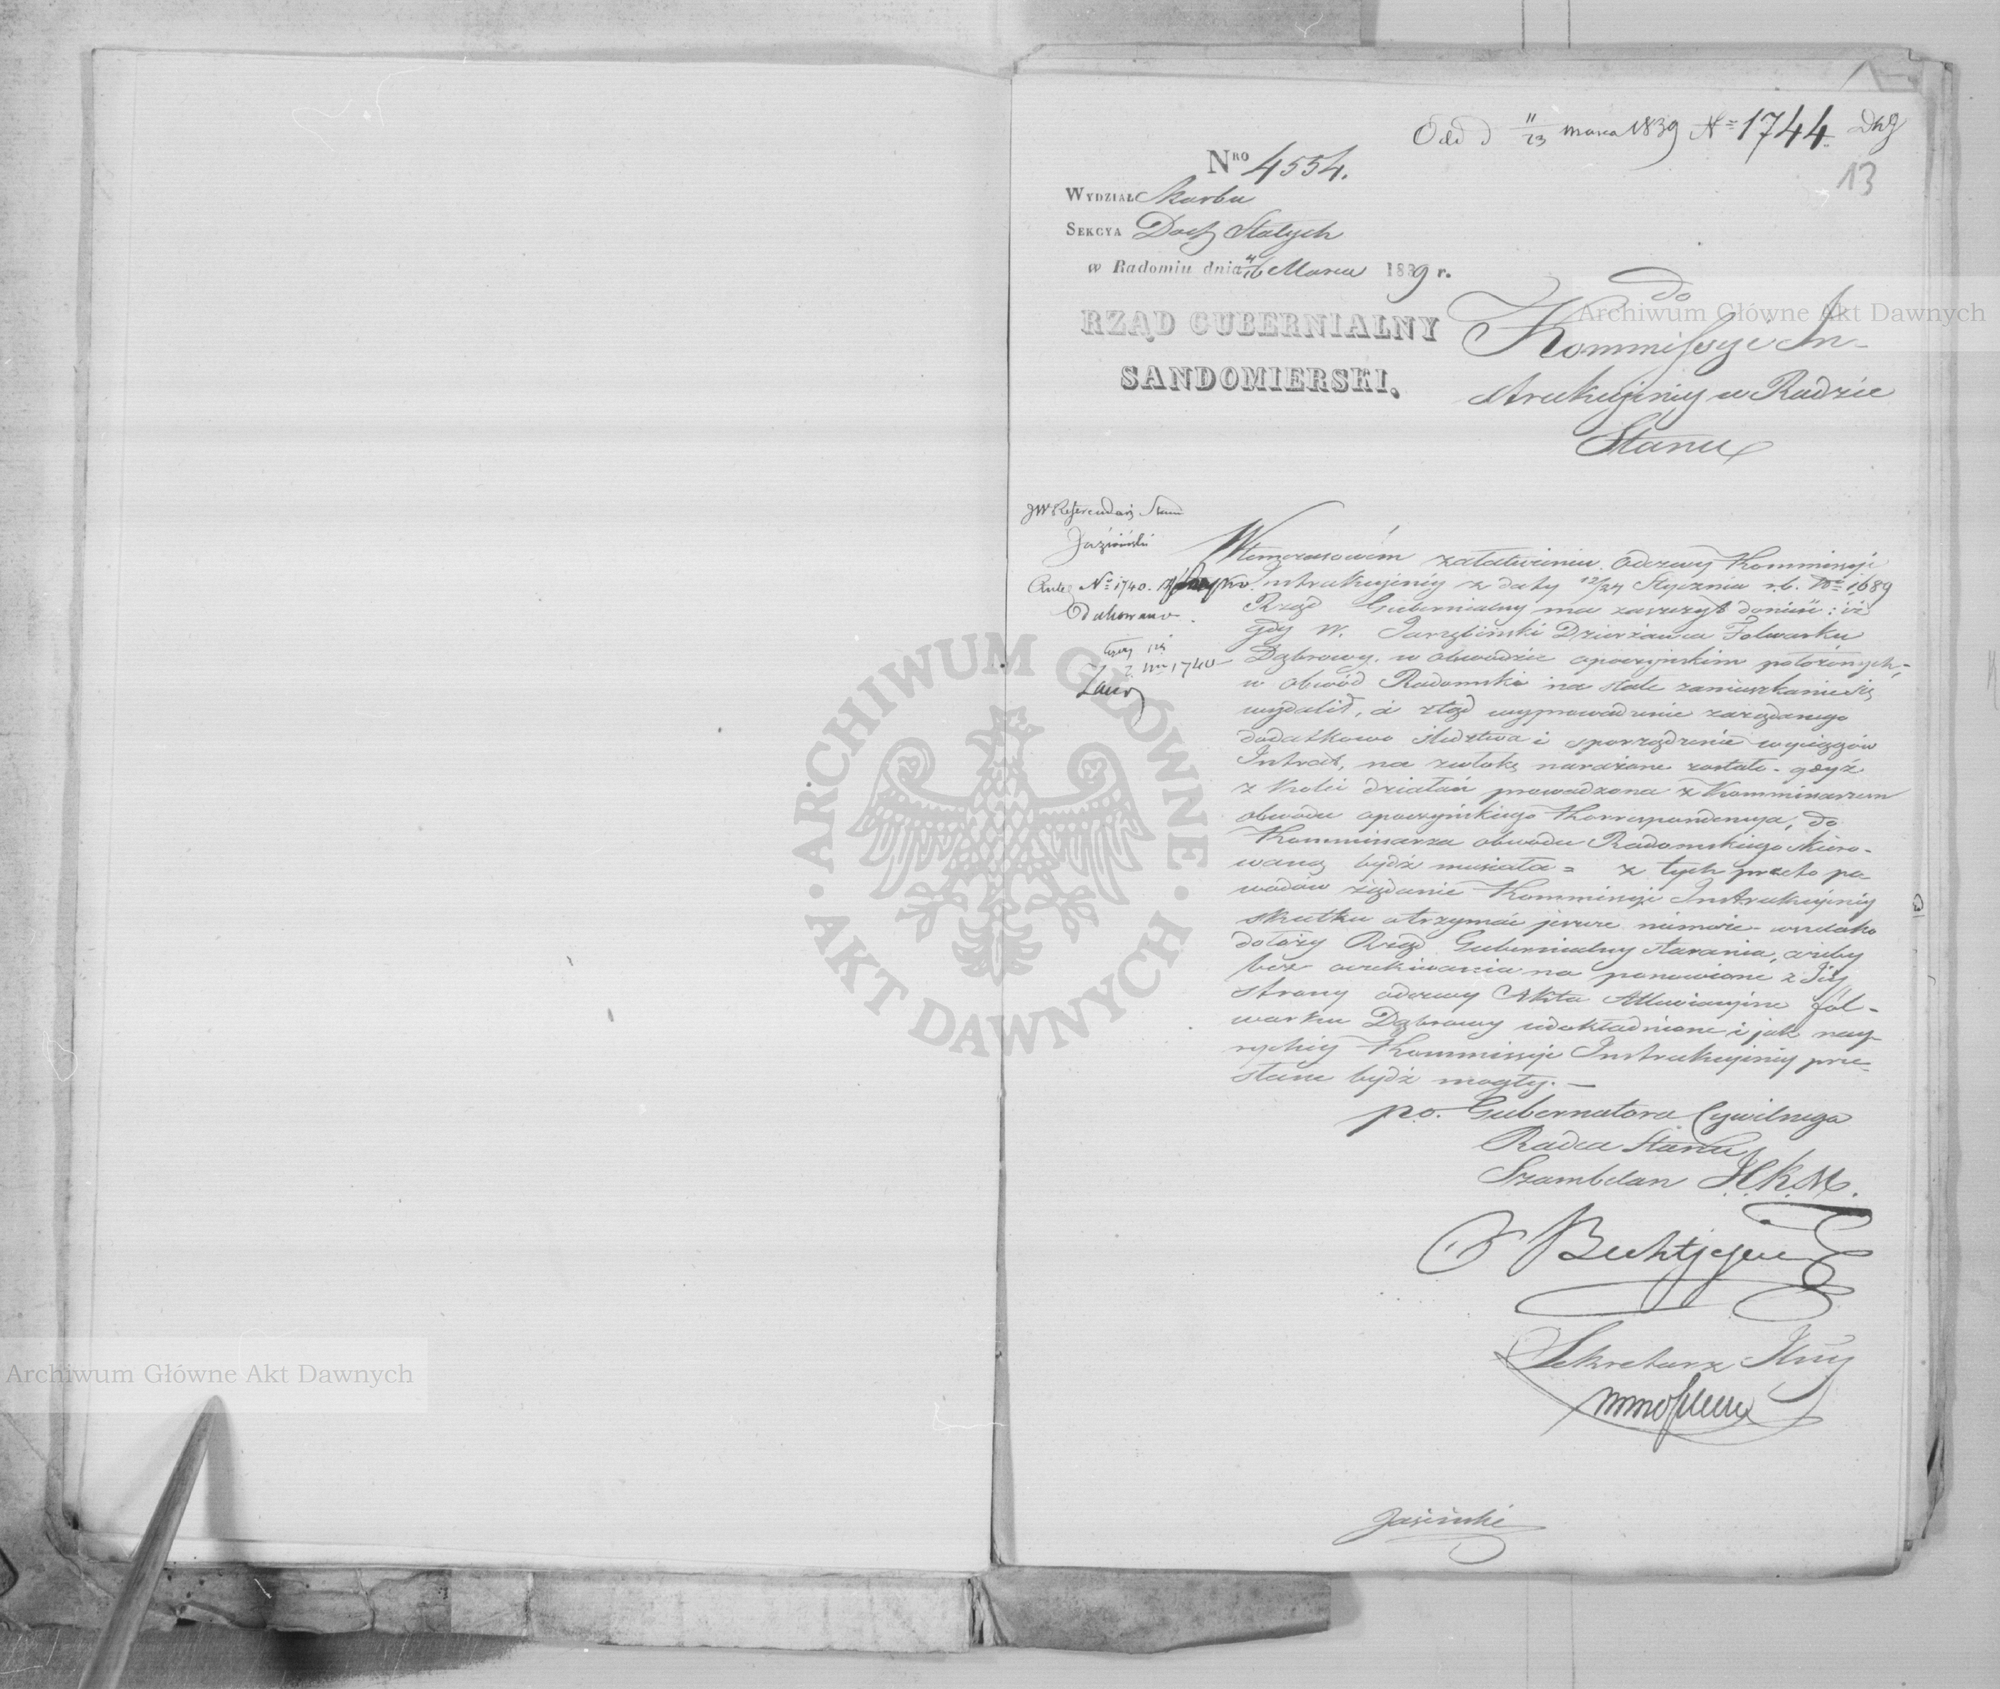 Odd d 11/23 marca 1839 N= 1744.
13
NRO 4554.
WYDZIAŁ Skarbu
SEKCYA Doch Stałych
w Radomiu dnia 4/16 Marca 1839 r.
RZĄD GUBERNIALNY
SANDOMIERSKI.
do
Kommissyi In-
strukcyjney w Radzie
Stanu
JW Referendarz Stanu
Jasiński
N= 1740.
W tymczasowém załatwieniu odezwy Kommissyi
Instrukcyjnéy z daty 12/24 Stycznia r. b. No 1689
Rząd Gubernialny ma zaszczyt donieść: iż
gdy W. Jarzębiński Dzierżawca Folwarku
Dąbrowy, w obwodzie opoczyńskim położonych,
w obwód Radomski na stałe zamieszkanie się
wydalił, a ztąd wyprowadzenie zarządzonego
dodatkowo śledztwa i sporządzenie wyciągów
Intrat, na zwłokę narażone zostało - gdyż
z kolei działań prowadzona z Kommissarzem
obwodu opoczyńskiego Korrespondencya, do
Kommissarza obwodu Radomskiego skiero-
waną bydź musiała = z tych przeto po-
wodów żądanie Kommissyi Instrukcyjnéy
skutku otrzymać jeszcze niemoże - wszelako
dołoży Rząd Gubernialny starania, ażeby
bez oczekiwania na ponowione z Jéy
strony odezwy Akta Alluwiacyine fol-
warku Dąbrowy udokładnione i jak nay-
rychléy Kommissyi Instrukcyjnéy prze-
słane bydź mogły. -
po. Gubernatora Cywilnego
Radca Stanu
Szambelan J.C.K.M.
Sekretarz Jlny
Jasiński
Archiwum Główne Akt Dawnych
Archiwum Główne Akt Dawnych
· ARCHIWUM GŁÓWNE ·
AKT DAWNYCH